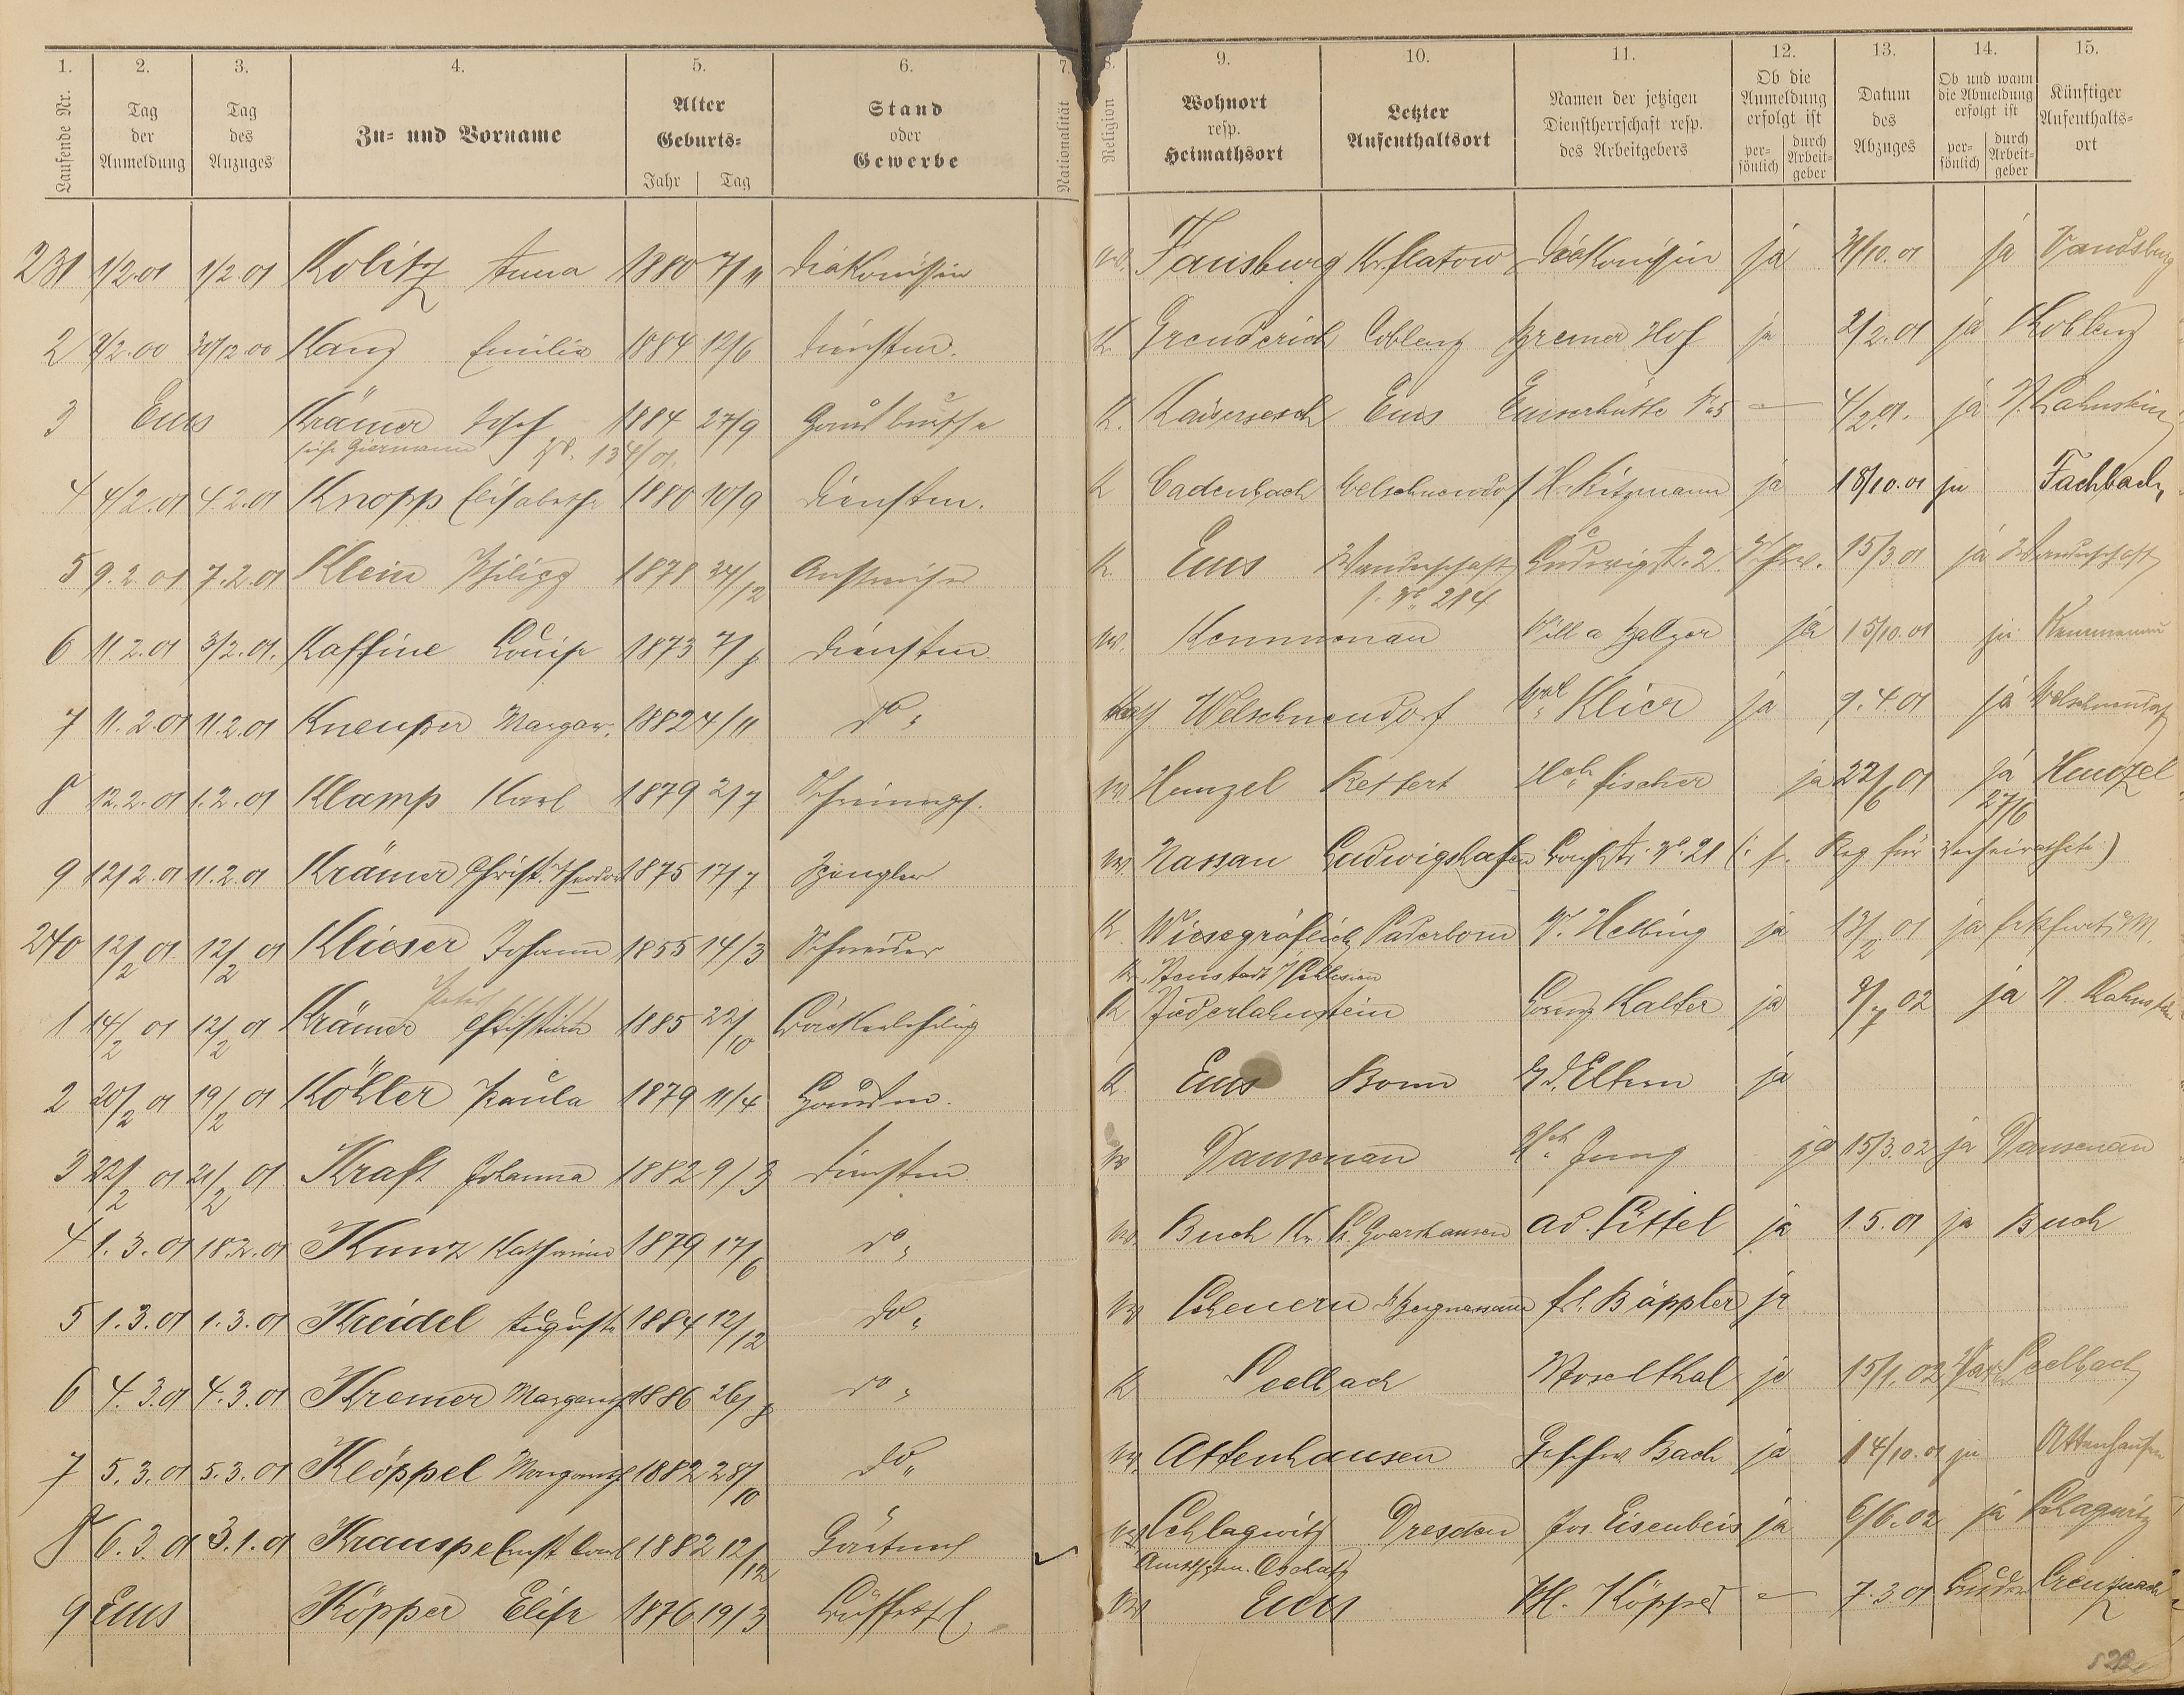 1. 2. 3. 4. 5. 6. 7. 8. 9. 10. 11. 12. 13. 14. 15.
Laufende Nr. Tag der Anmeldung Tag des Anzuges Zu- und Vorname Alter Geburts- Jahr Tag Stand oder Gewerbe Nationalität Religion Wohnort resp. Heimathsort Letzter Aufenthaltsort Namen der jetzigen Dienstherrschaft resp. des Arbeitgebers Ob die Anmeldung erfolgt ist per- sönlich durch Arbeit- geber Datum des Abzuges Ob und wann die Abmeldung erfolgt ist per- sönlich durch Arbeit- geber Künftiger Aufenthalts- ort
231 1/2.01 1/2.01 Kolitz Anna 1880 7/11 Diakonissin Kr. flatow Diakonissin ja 31/10.01 ja Vandsburg
2 2/2.00 30/12.00 Kanz Emilie 1884 12/6 Dienstm. K. Grenderich Coblenz Bremer Hof ja 2/2.01 ja Koblenz
3 Ems Krämer Josef 1884 27/9 Hausbursche K. Kaisersesch Ems Emserhütte No 5 — 4/2.01. ja N. Lahnstein
siehe Giermann No. 134/01.
4 4/2.01 4.2.01 Knopp Elisabeth 1880 10/9 Dienstm. K Cadenbach Welschneudorf H. Ritzmann ja 18/10.01 ja Fachbach
5 9.2.01 7.2.01 Klein Philipp 1878 24/12 Anstreicher K. Ems Wanderschaft Ludwigstr. 2 15/3 01 ja Wanderschaft
f. No. 284
6 11.2.01 3/2.01. Kaffine Louise 1873 7/8 Dienstm. Kemmenau Villa Balzer ja 15/10.01 ja Kemmenau
7 11.2.01 11.2.01 Kneuper Margar. 1882 4/11 do. Kath. Welschneudorf Klier ja 9.4 01 ja Welschneudorf
8 12.2.01 1.2.01 Klamp Karl 1879 2/7 Schreinergh. Hunzel Rettert Hch. Fischer ja 22/6 01 ja Hunzel
27/6
9 12/2.01 11.2.01 Krämer Christ. Theodor 1875 17/7 Spengler Nassau Ludwigshafen No. 21 (: s. Reg für Verheirathete)
240 12/2 01. 12/2 01 Klieser Johann 1855 14/3 Schneider K. Paderborn W. Helbing ja 13/2 01 ja Frkfurt a/M.
Kr. Neustadt /Schlesien
Peter
1 14/2 01 12/2 01 Krämer Christian 1885 22/10 Bäckerlehrling K Niederlahnstein Kalter ja 9/7 02 ja N. Lahnstein
2 20/2 01 19/2 01 Köhler Paula 1879 11/4 Hausm. K. Ems Bonn b/d. Eltern ja
3 22/2 01 21/2 01 Kraft Johanna 1882 9/3 Dienstm. Dausenau Hch. Jung ja 15/3.02 ja Dausenau
4 1.3.01 18.2.01 Kunz Katharina 1879 17/6 do. Buch Kr. St. Goarshausen Ad. Pittel ja 1.5.01 ja Buch
5 1.3.01 1.3.01 Kreidel Auguste 1884 12/12 do. Scheuern b Bergnassau frl. Bäppler ja
6 4.3.01 4.3.01 Kremer Margareth 1886 26/8 do. K Seelbach Moselthal ja 15/1.02 Seelbach
7 5.3.01 5.3.01 Klöppel Margareth 1882 28/10 do. Attenhausen Geschw. Bach ja 14/10.01 ja Attenhausen
8 6.3.01 3.1.01 Krauspe Ernst Carl 1882 12/12 Gärtner Schlagwitz Dresden Jos. Eisenbeis ja 6/6.02 ja Schlagwitz
Amtshptm. Oschatz
9 Ems Köpper Elise 1876 19/3 Büffetfrl. Ems Köpper — 7.3 01 Creuznach
522